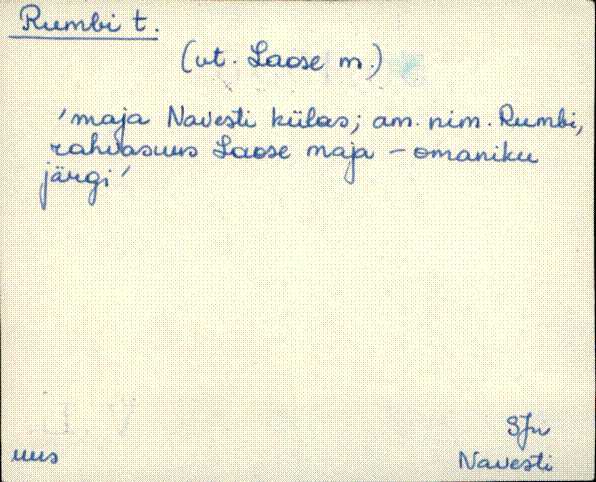 Rumbi t.
(vt. Laose m.)
'maja Navesti külas; am. nim. Rumbi,
rahvasuus Laose maja - omaniku
järgi'
SJn
uus
Navesti